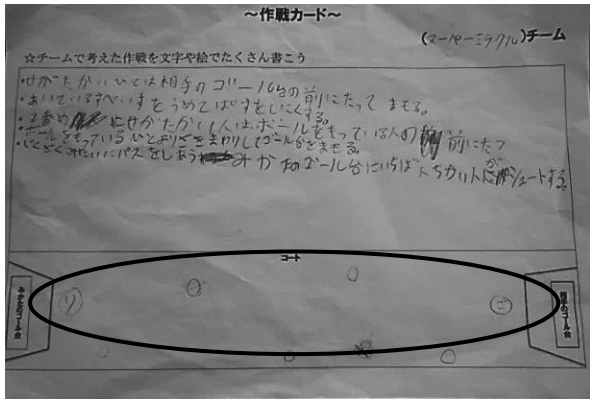 ～作戦カード～
(スーパーミラクル)チーム
☆チームで考えた作戦を文字や絵でたくさん書こう
・せがたかいひとは相手のゴール台の前にたってまもる。
・あいているすぺいすをうめてぱすをしにくくする。
・2番め にせがたかい人は、ボールをもっている人の 前にたつ
ボールをもっているひとよりさきまわりしてゴールがをまもる。
・じぐざぐみたいにパスをしあう みかたのゴール台にいちばんちかい人がシュートする。
コート
みかたのゴール台
相手のゴール台
リ
こ